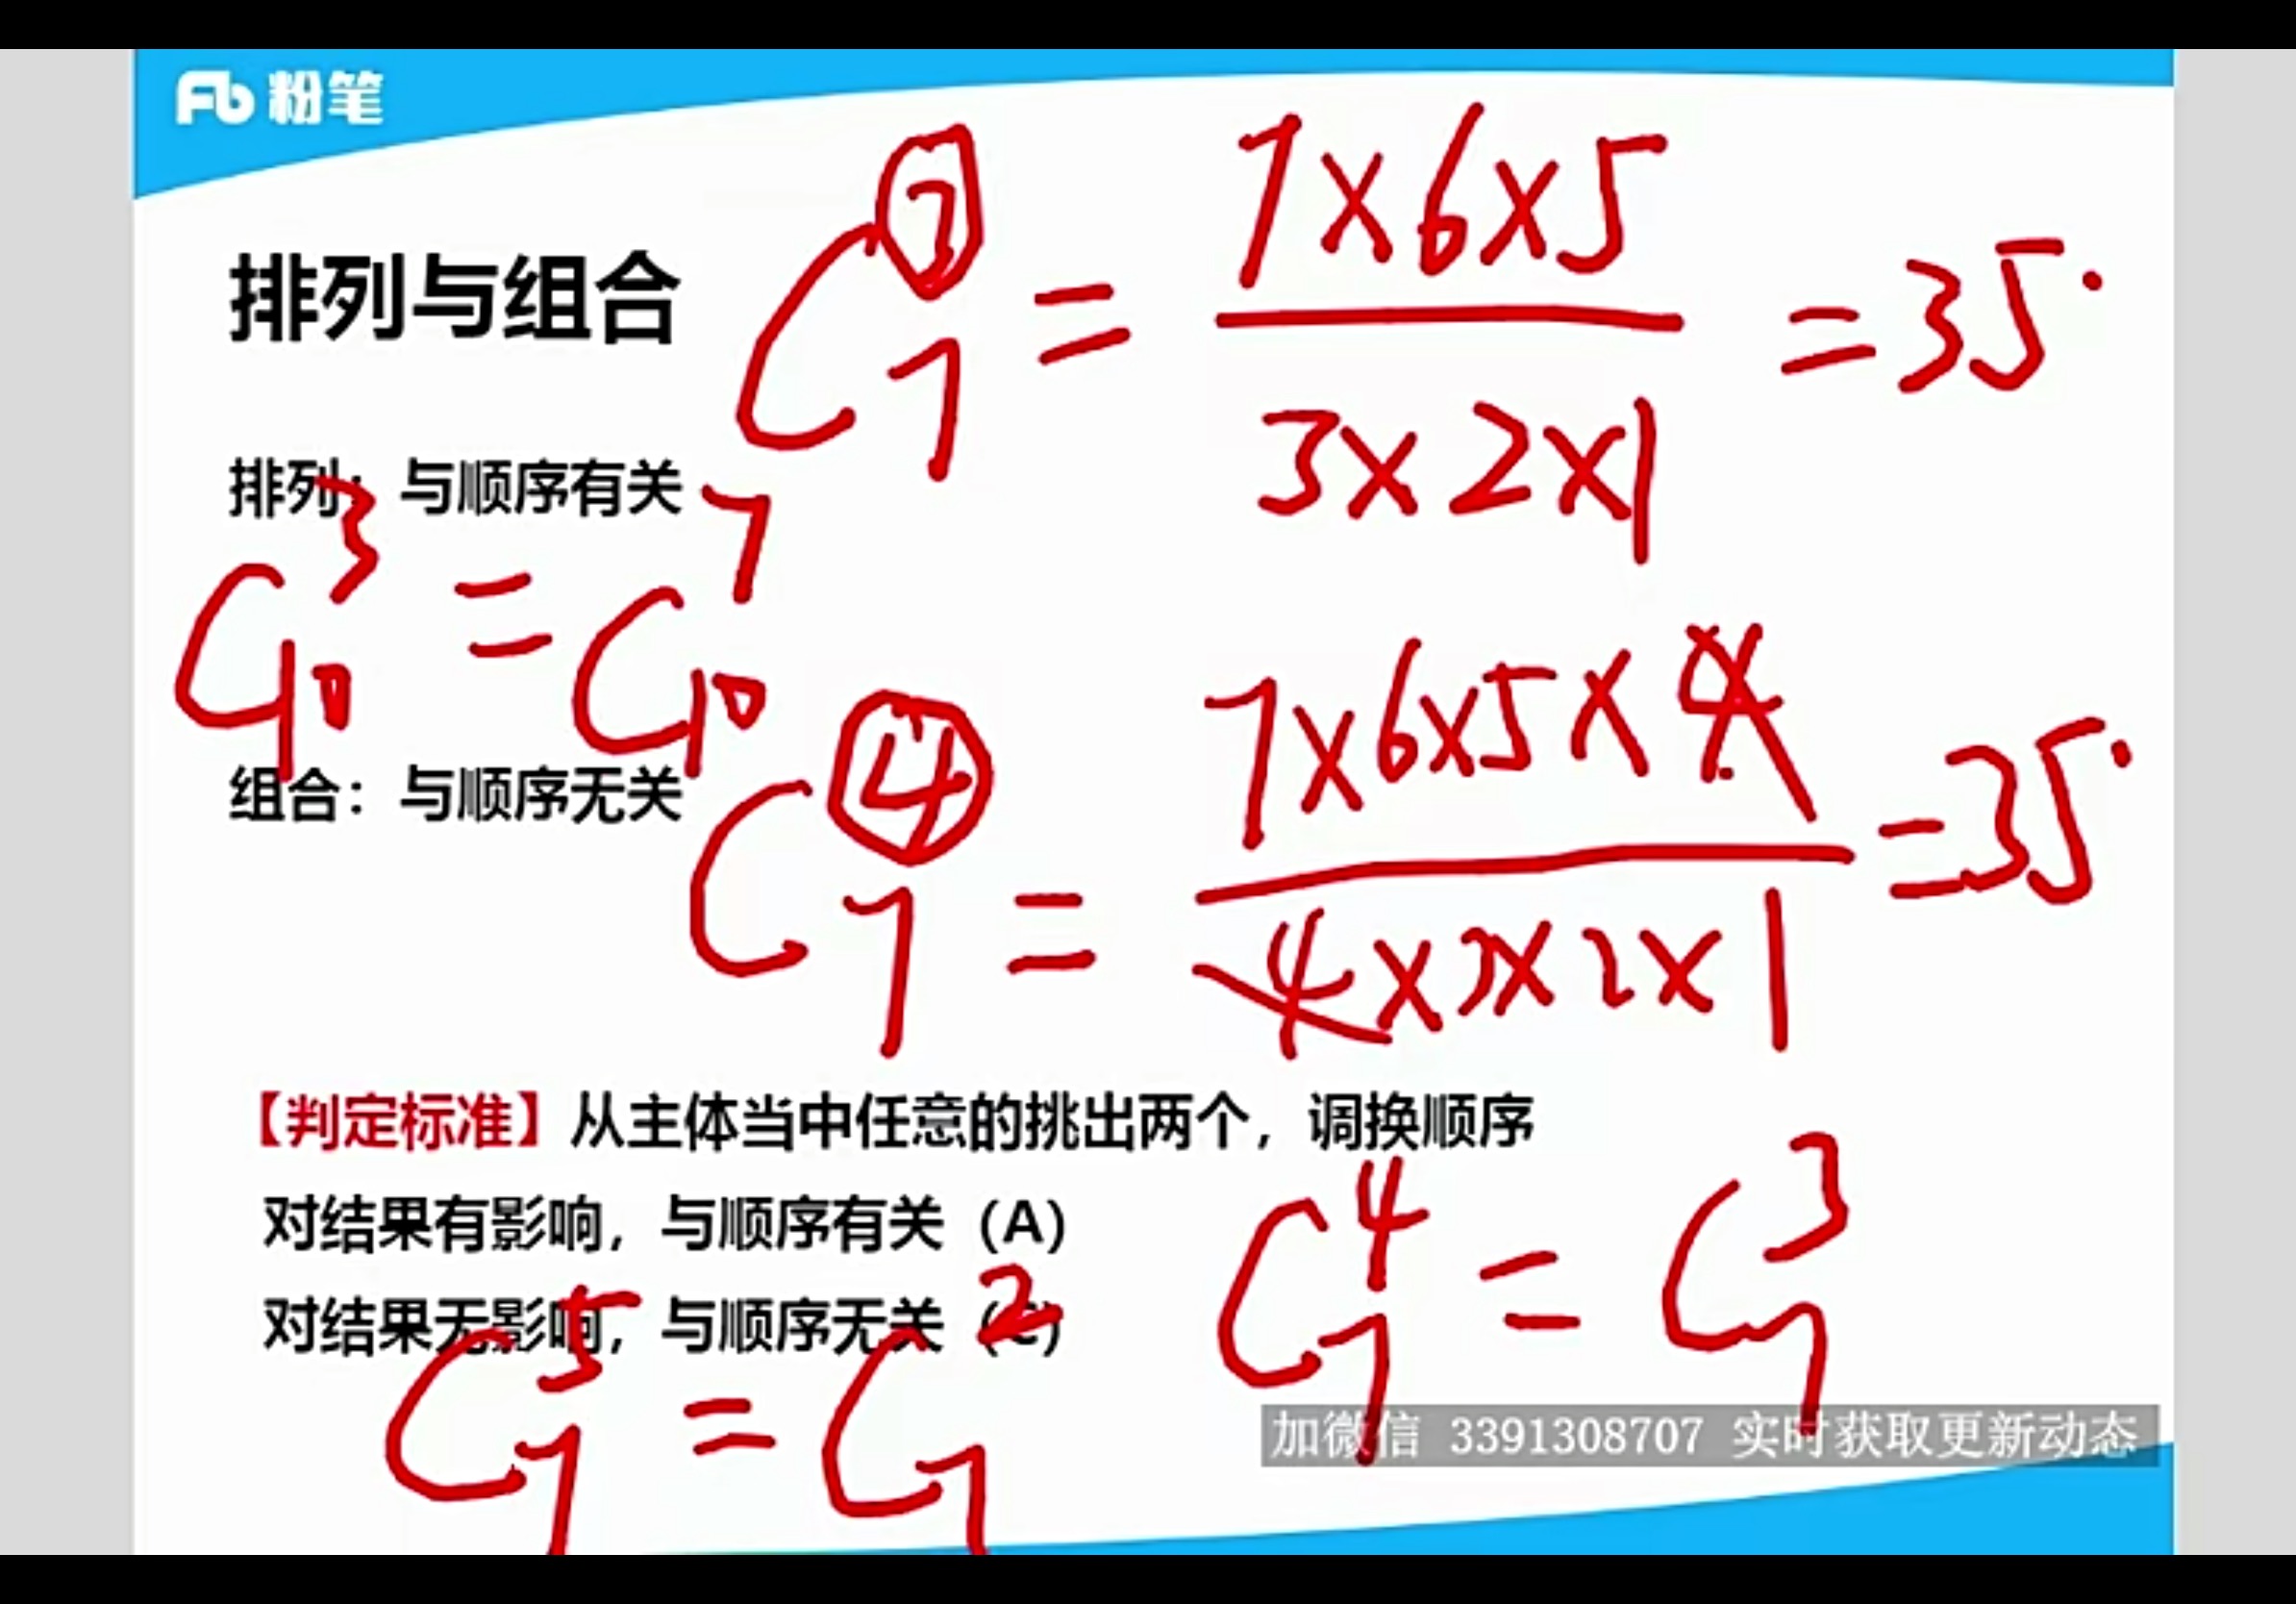 粉笔
排列与组合
C₇³ = 7×6×5 / 3×2×1 = 35
排列：与顺序有关
C₁₀³ = C₁₀⁷
组合：与顺序无关
C₇⁴ = 7×6×5×4 / 4×3×2×1 = 35
【判定标准】从主体当中任意的挑出两个，调换顺序
对结果有影响，与顺序有关（A）
对结果无影响，与顺序无关（C）
C₇⁴ = C₇³
C₇⁵ = C₇²
加微信 3391308707 实时获取更新动态